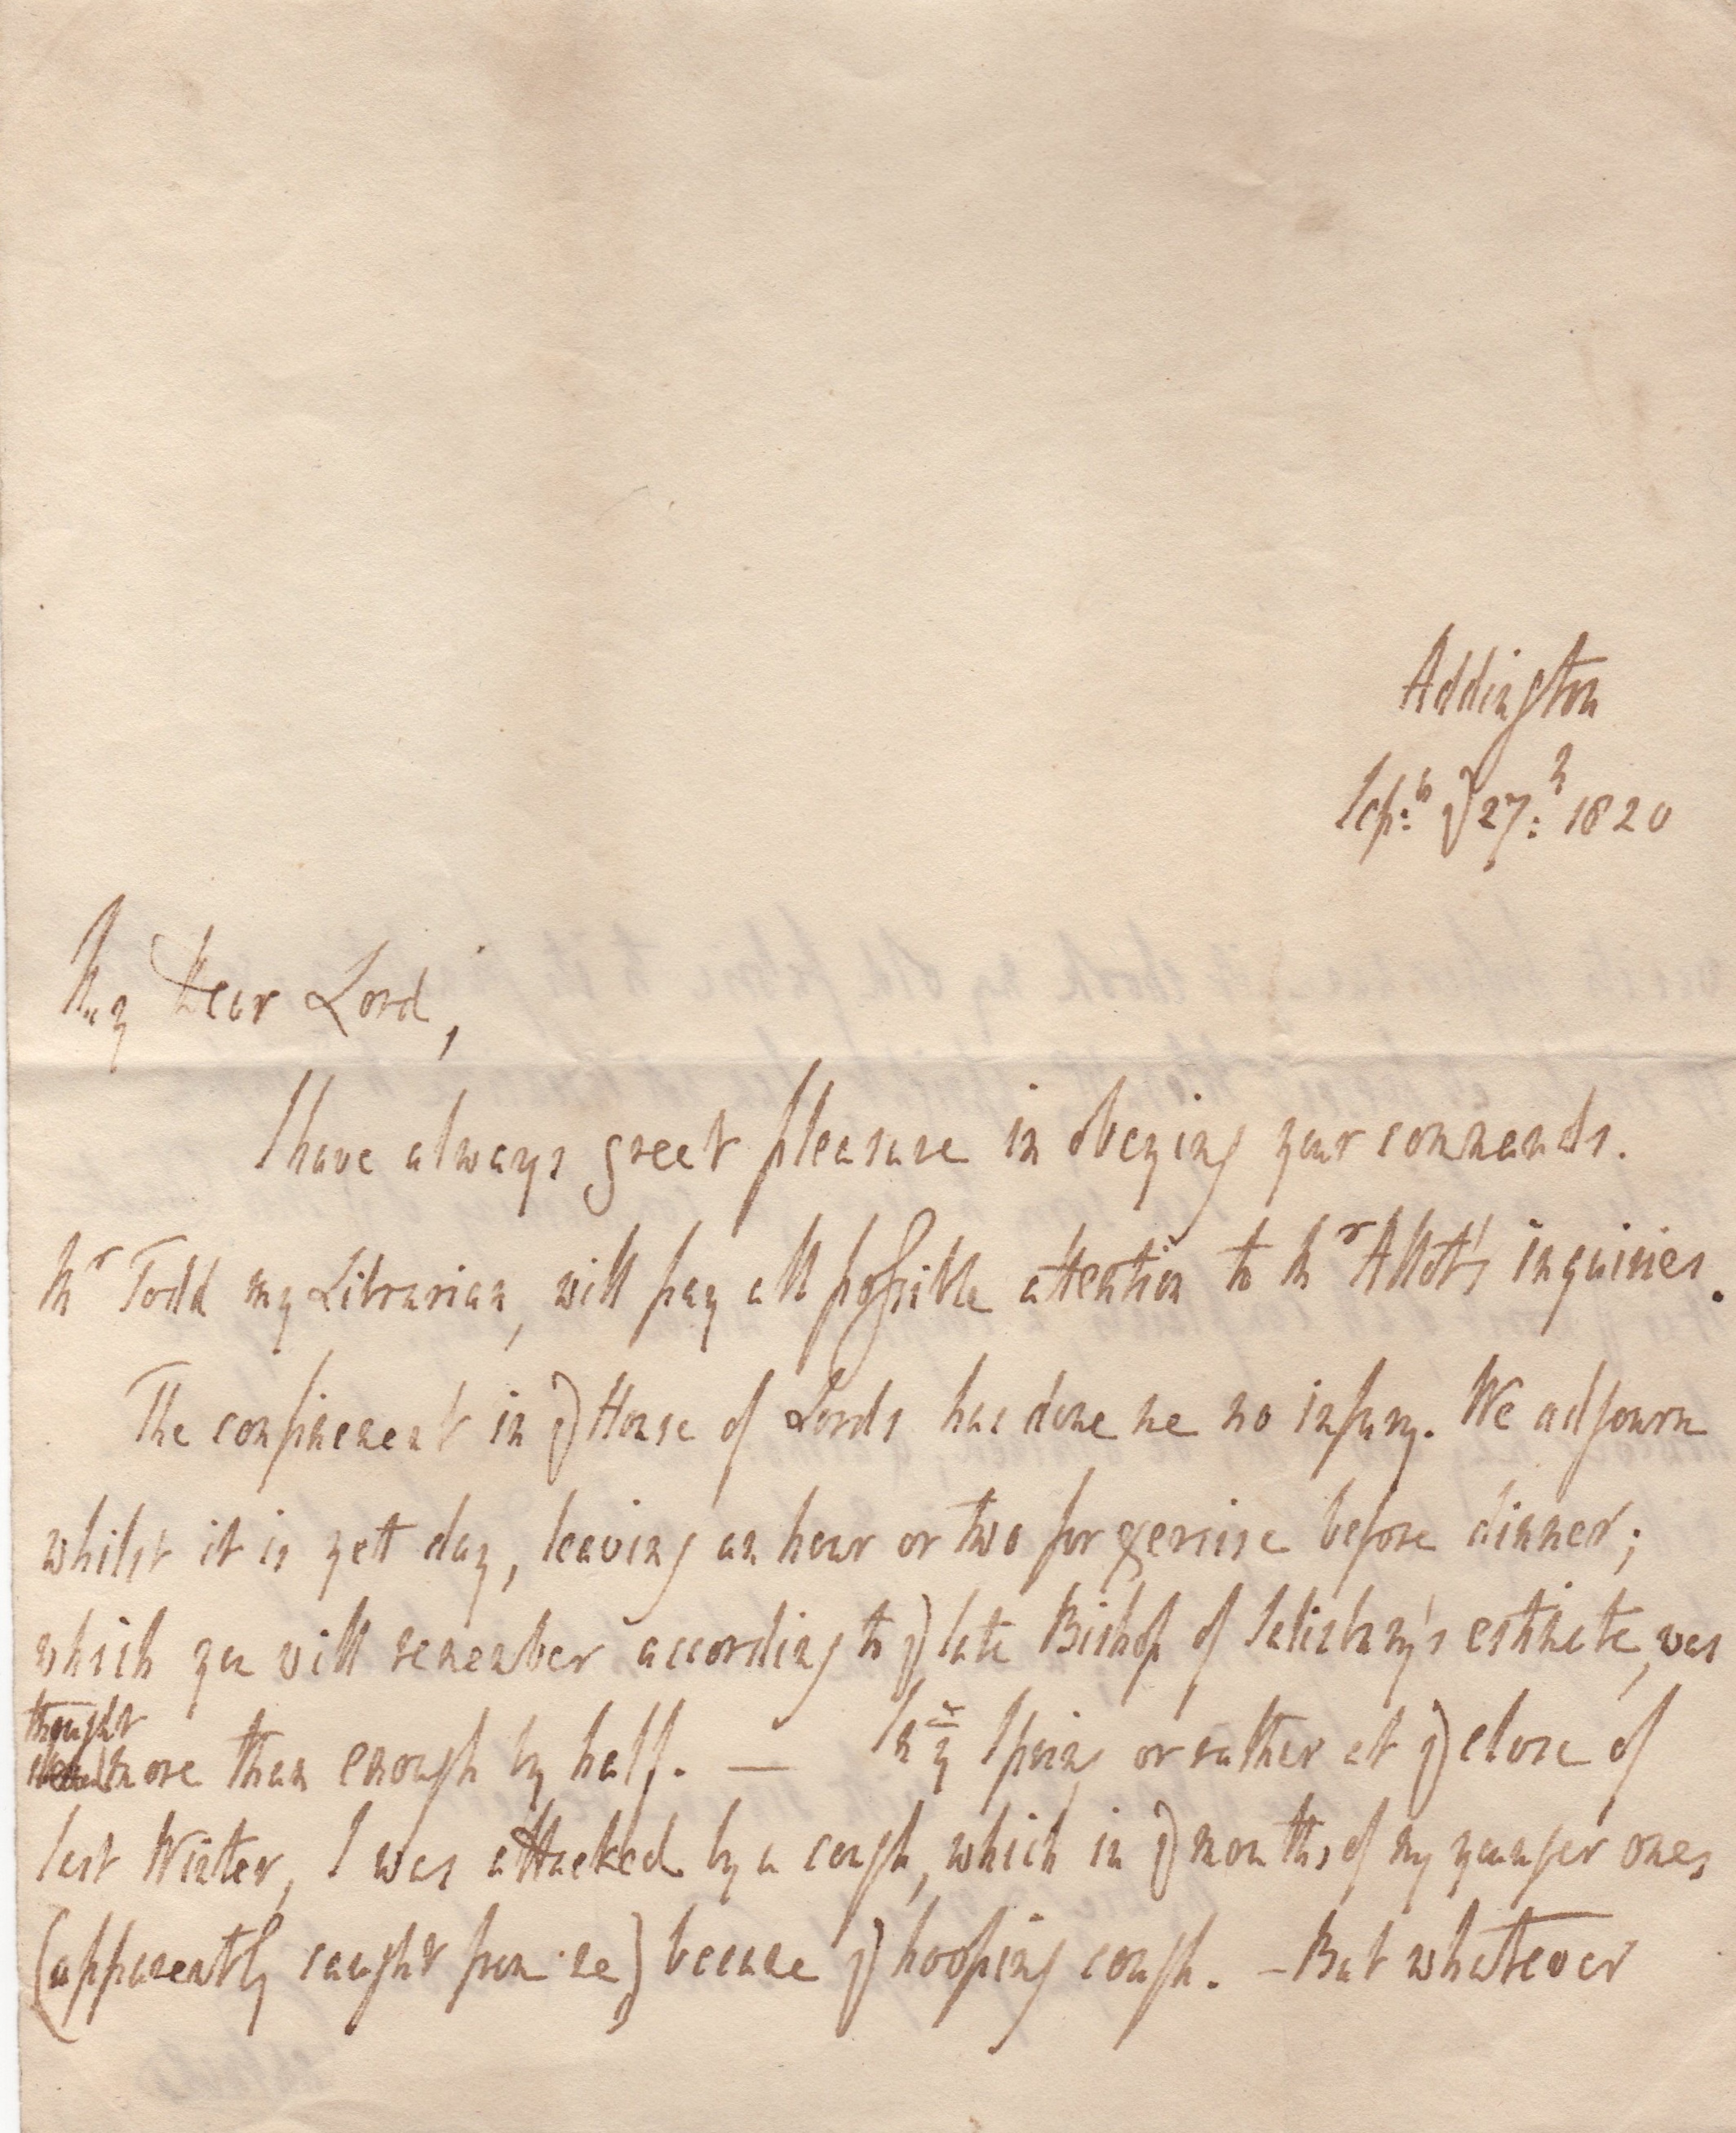 Addington
Sep:ʳ yᵉ 27:ʰ 1820
My Dear Lord,
I have always great pleasure in obeying your commands.
Mʳ Todd my Librarian, will pay all possible attention to Mʳ Allott's inquiries.
The confinement in yᵉ House of Lords has done me no injury. We adjourn
whilst it is yett day, leaving an hour or two for exercise before dinner;
which you will remember according to yᵉ late Bishop of Salisbury's estimate, was
thought
more than enough by half. — In yᵉ Spring or rather at yᵉ close of
last Winter, I was attacked by a cough, which in yᵉ mouths of my younger ones
(apparently caught from me) became yᵉ hooping cough. – But whatever